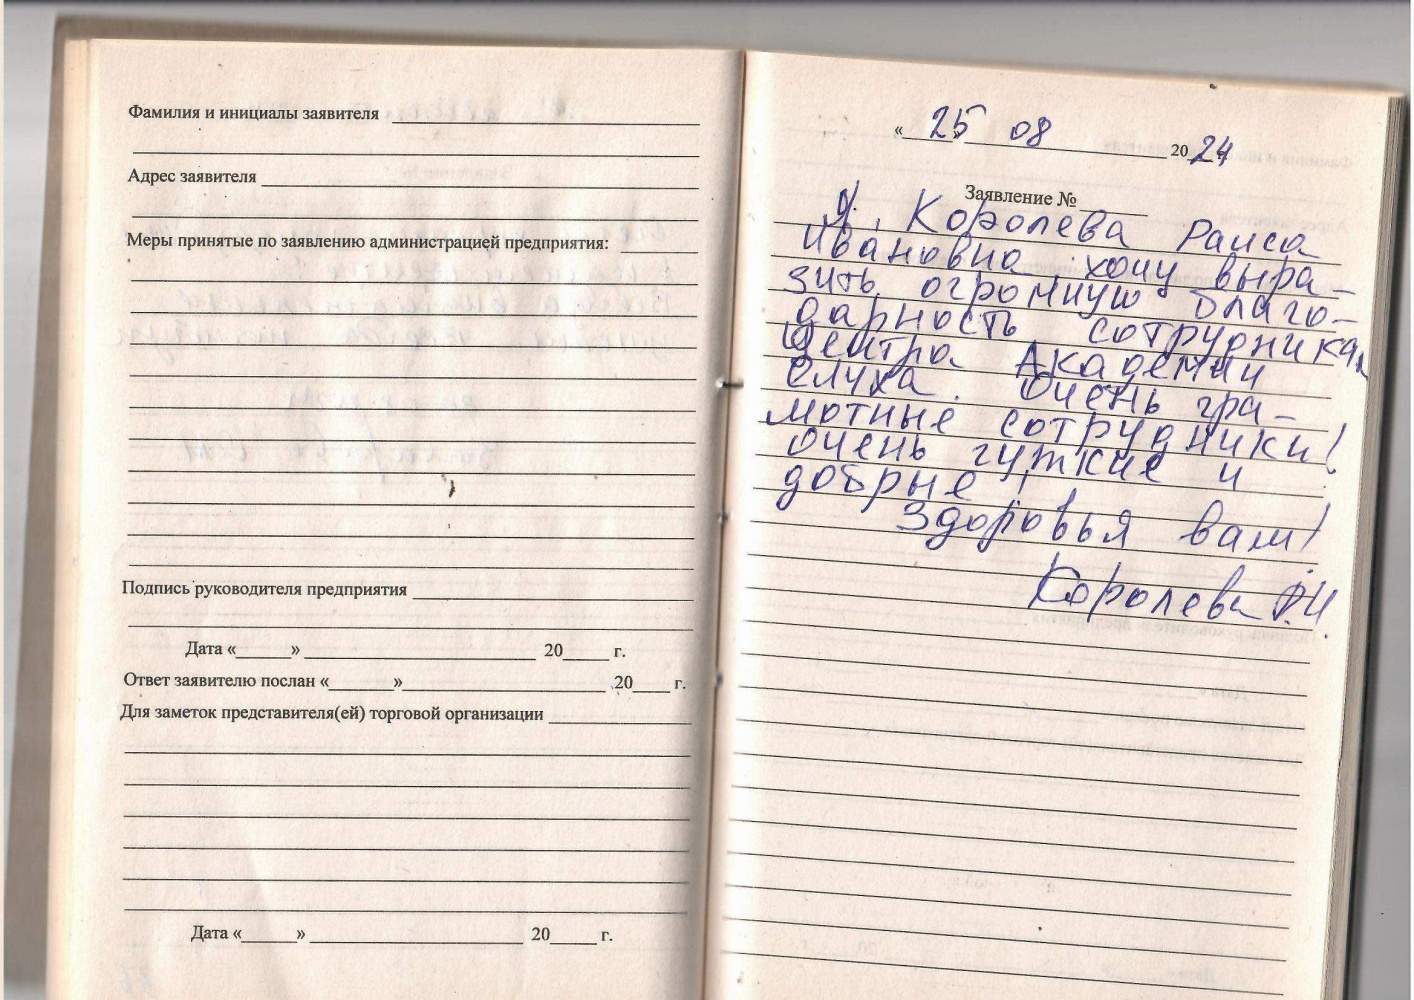 Фамилия и инициалы заявителя
Адрес заявителя
Меры принятые по заявлению администрацией предприятия:
Подпись руководителя предприятия
Дата «______» ____________ 20_____ г.
Ответ заявителю послан «_______»____________ 20____ г.
Для заметок представителя(ей) торговой организации
Дата «______» ____________ 20_____ г.
« 25 » 08 2024
Заявление №
Я, Королева Раиса
Ивановна хочу выра-
зить огромную благо-
дарность сотрудникам
Центра Академии
Слуха. Очень гра-
мотные сотрудники!
очень чуткие и
добрые!
Здоровья вам!
Королева Р.И.